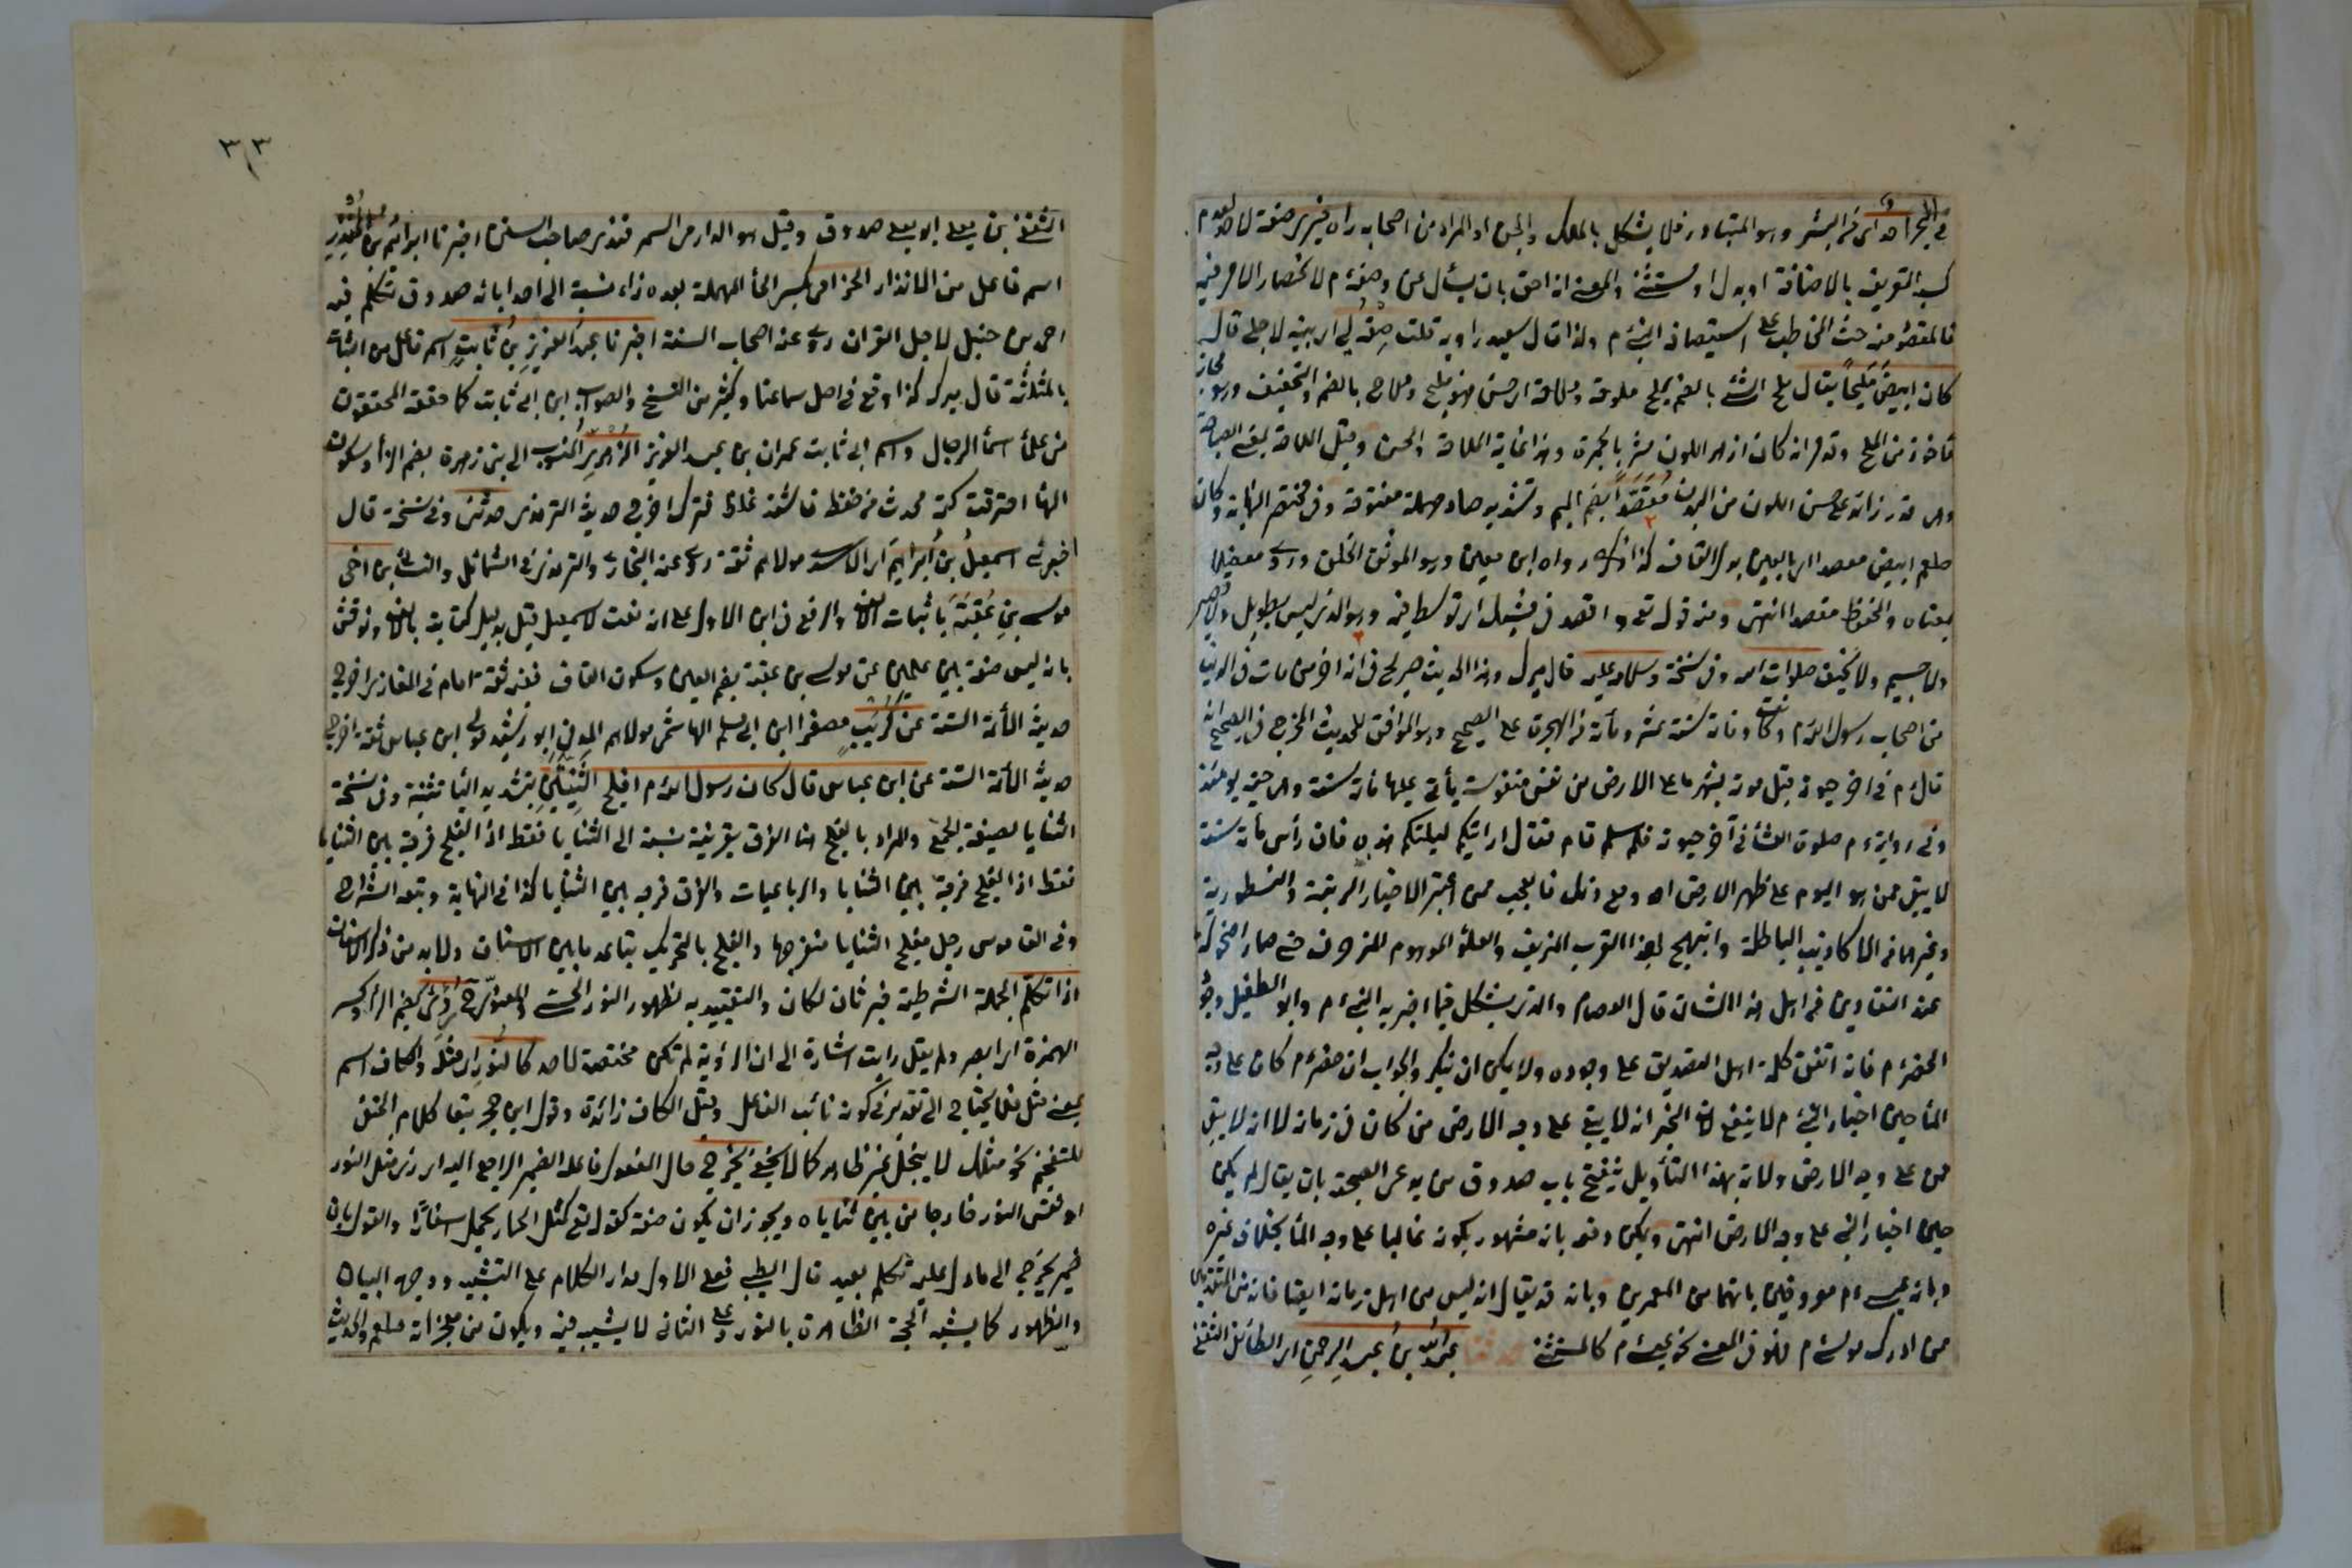 كسبه التعريف بالاضافة او بدل او مستثنى والمعنى انه احق بان يسأل عن وصفه م لانحصار الامر فيه
فالمقصود منه حث المخاطب على استيصافه النبي م ولذا قال سعيد راويه قلت صفه لي اى بينه لاجلى قال
كان ابيض مليحا يقال ملح الشئ بالضم يملح ملوحة وملاحة اى حسن فهو مليح وملاح بالضم والتخفيف وهو مجاز
مأخوذ من الملح وقد مر انه كان ازهر اللون مشربا بحمرة وهذا غاية الملاحة والحسن وقيل الملاحة بمعنى الصباحة
وهى قدر زائد على حسن اللون من البدن مقصدا بضم الميم وتشديد صاد مهملة مفتوحة وفى مختصر النهاية وكان
صلعم ابيض معصدا اى بالعين بدل القاف كذا رواه ابن معين وهو الموثق الخلق وروى
بمعناه والمحفوظ مقصدا انتهى ومنه قوله تع واقصد فى مشيك اى توسط فيه وهو الذى ليس بطويل ولا قصير
ولا جسيم ولا نحيف صلوات الله وفى نسخة وسلامه عليه قال ميرك وهذا الحديث صريح فى انه اخر من مات فى الدنيا
من اصحاب رسول الله م وكانت وفاته سنة عشر ومائة من الهجرة على الصحيح وهو الموافق للحديث المخرج فى الصحيح انه
قال م فى اخر حيوته قبل موته بشهر ما على الارض من نفس منفوسة يأتى عليها مائة سنة وهى حية يومئذ
وفى رواية م صلوة العشاء فى آخر حيوته فلما سلم قام فقال ارايتكم ليلتكم هذه فان رأس مائة سنة
لا يبقى ممن هو اليوم على ظهر الارض اه ومع ذلك فالعجب ممن اعتبر الاخبار الرتنية والنسطورية
وغيرهما من الاكاذيب الباطلة وابتهج بهذا القرب المزيف والعلو الموهوم المزخرف حتى صار اضحوكة
عند النقادين من اهل هذا الشان قال العصام والذى يشكل فيما اخبر به النبى م وابو الطفيل وجود
الخضر م فانه اتفق كلمة اهل التصديق على وجوده ولا يمكن ان ينكر والجواب ان خضر م كان على وجه
الماء حين اخبار النبى م لا ينفع لان الخبر انه لا يبقى على وجه الارض من كان فى زمانه لا انه لا يبقى
من على وجه الارض ولانه بهذا التأويل ينفتح باب صدوق من يدعى الصحبة بان يقال لم يكن
حين اخبار النبى على وجه الارض انتهى ويمكن دفعه بانه مشهور بكونه غالبا على وجه الماء بخلاف غيره
وبانه وعيسى م معروفين بانهما من المعمرين وبانه قد يقال انه ليس من اهل زمانه ايضا فانه من المتقدمين
ممن ادرك موسى م فهو فى المعنى كعيسى م كالمستثنى حدثنا عبد الله بن عبد الرحمن اى الطائفى الثقفى
٣٣
الثقفى بن يعلى ابو يعلى صدوق وقيل هو الدارمى السمرقندى صاحب السنن اخبرنا ابراهيم بن المنذر
اسم فاعل من الانذار الحزامى بكسر الحاء المهملة بعده زاء نسبة الى احد ابائه صدوق تكلم فيه
احمد بن حنبل لاجل القران روى عنه اصحاب السنة اخبرنا عبد العزيز بن ثابت اسم فاعل من الثبات
بالمثلثة قال ميرك كذا وقع فى اصل سماعنا وكثير من النسخ والصواب ابن ابى ثابت كما حققه المحققون
من علماء اسماء الرجال واسم ابى ثابت عمران بن عبد العزيز الزهرى المنسوب الى بنى زهرة بضم الزاء وسكون
الهاء احترقت كتبه فحدث من حفظه فاشتد غلطه فترك اخرج حديثه الترمذى حدثنى وفى نسخة قال
اخبرنى اسمعيل بن ابراهيم اى الاسدى مولاهم ثقة روى عنه البخارى والترمذى فى الشمائل والنسائى بن اخى
موسى بن عقبة باثبات الالف والرفع فى ابن الاول على انه نعت لاسمعيل قيل بدليل كتابته بالالف ونوقش
بانه ليس صفة بين علمين عن موسى بن عقبة بضم العين وسكون القاف فقيه ثقة امام فى المغازى اخرج
حديثه الائمة الستة عن كريب مصغرا ابن ابى مسلم الهاشمى مولاهم المدنى ابو رشدين مولى ابن عباس ثقة اخرج
حديثه الائمة الستة عن ابن عباس قال كان رسول الله م افلج الثنيتين بتشديد الياء تثنية وفى نسخة
الثنايا بصيغة الجمع والمراد بالفلج هنا الفرق بقرينة نسبته الى الثنايا فقط اذ الفلج فرجة بين الثنايا
فقط اذ الفلج فرجة بين الثنايا والرباعيات والفرق فرجه بين الثنايا كذا فى النهاية وتبعه الشراح
وفى القاموس رجل مفلج الثنايا منفرجها والفلج بالتحريك تباعد ما بين الاسنان ولابد من ذكر الاسنان
اذا تكلم الجملة الشرطية خبر ثان لكان والتقييد به لظهور النور الحسى والمعنوى ح رؤى بضم الراء وكسر
الهمزة اى ابصر ولم يقل رايت اشارة الى ان الرؤية لم تكن مختصة لاحد كالنور اى مثله والكاف اسم
بمعنى مثل فلا يحتاج الى تقدير فى كونه نائب الفاعل وقيل الكاف زائدة وقول ابن حجر تبعا لكلام الحنفى
للتفخيم نحو مثلك لا يبخل غير ظاهر كما لا يخفى يخرج حال المفعول فاعله الضمير الراجع اليه اى رؤى مثل النور
او نفس النور خارجا من بين ثناياه ويجوز ان يكون صفة كقوله تع كمثل الحمار يحمل اسفارا والقول بان
ضمير يخرج الى ما دل عليه تكلم بعيد قال الطيبى فعلى الاول مدار الكلام على التشبيه ووجهه البيان
والظهور كما يشبه الحجة الظاهرة بالنور وعلى الثانى لا يشبيه فيه ويكون من معجزاته صلعم والحديث